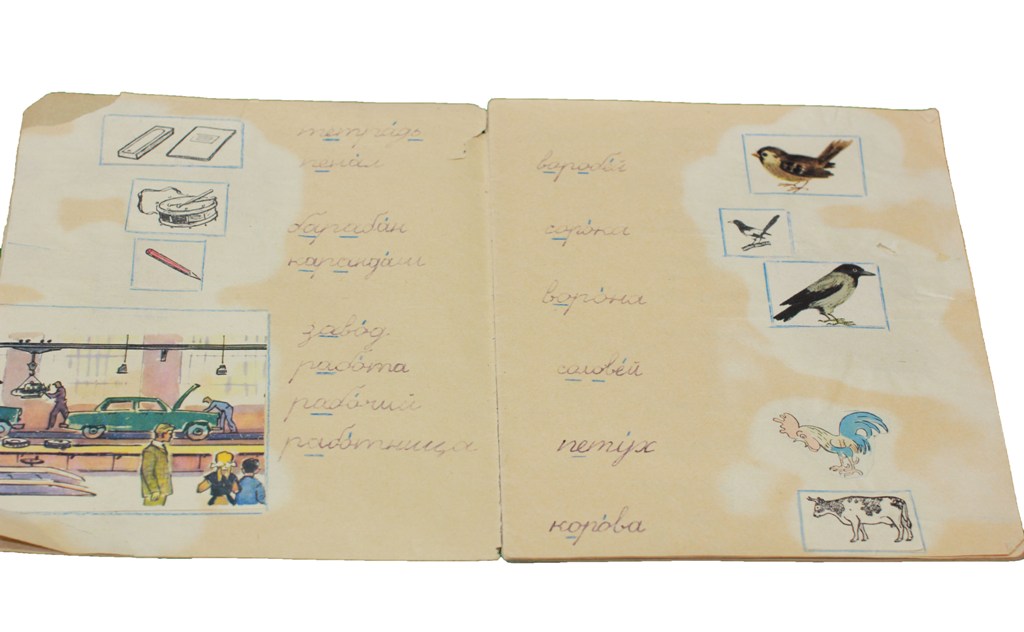 тетра́дь
пена́л
бараба́н
каранда́ш
заво́д
рабо́та
рабо́чий
рабо́тница
воробе́й
соро́ка
воро́на
солове́й
пету́х
коро́ва